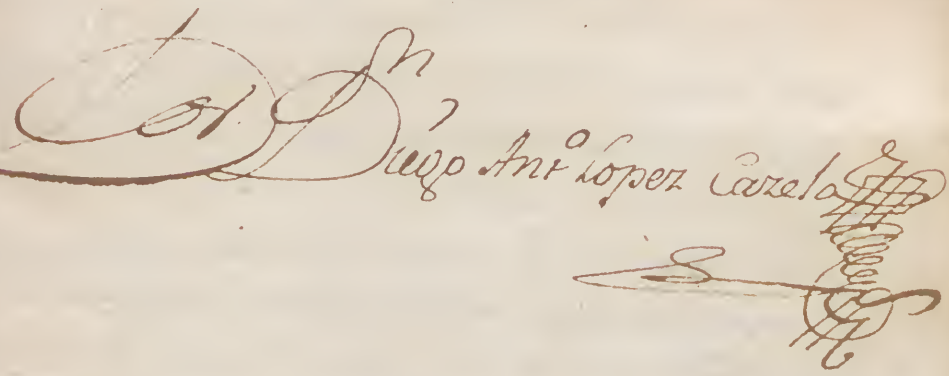 Dor. Dn Diego Anto Lopez Cazela